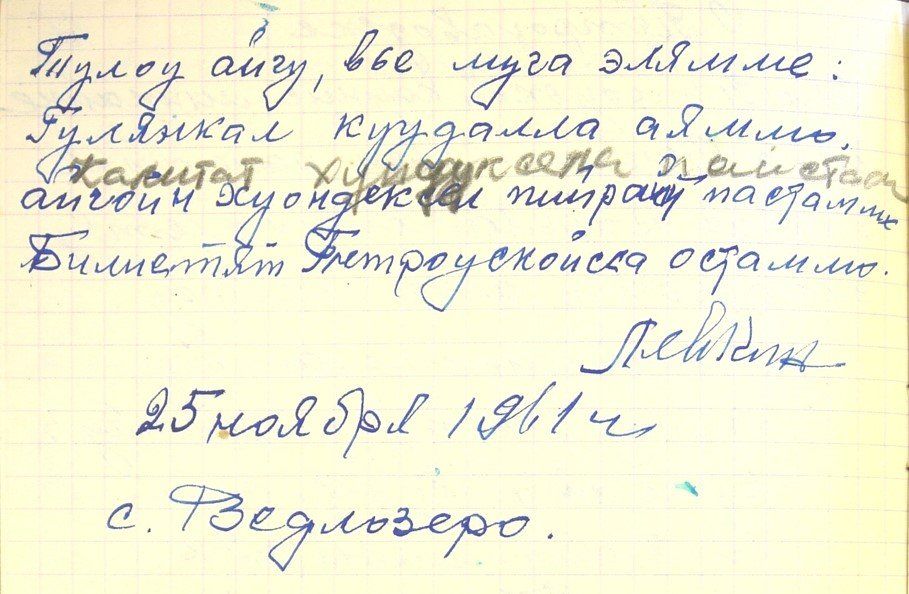 Тулоу айгу, вье муга элямме:
Гулянкал куудалла аяммо,
Капитат пайстаан
айгойн Хуондексел пийрай пастамм
Билиетят Петроускойсса остаммо.
Левкин
25 ноября 1961 г.
с. Ведлозеро.